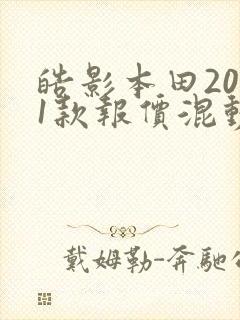 皓影本田20
1款報價混動
戴姆勒-奔馳公